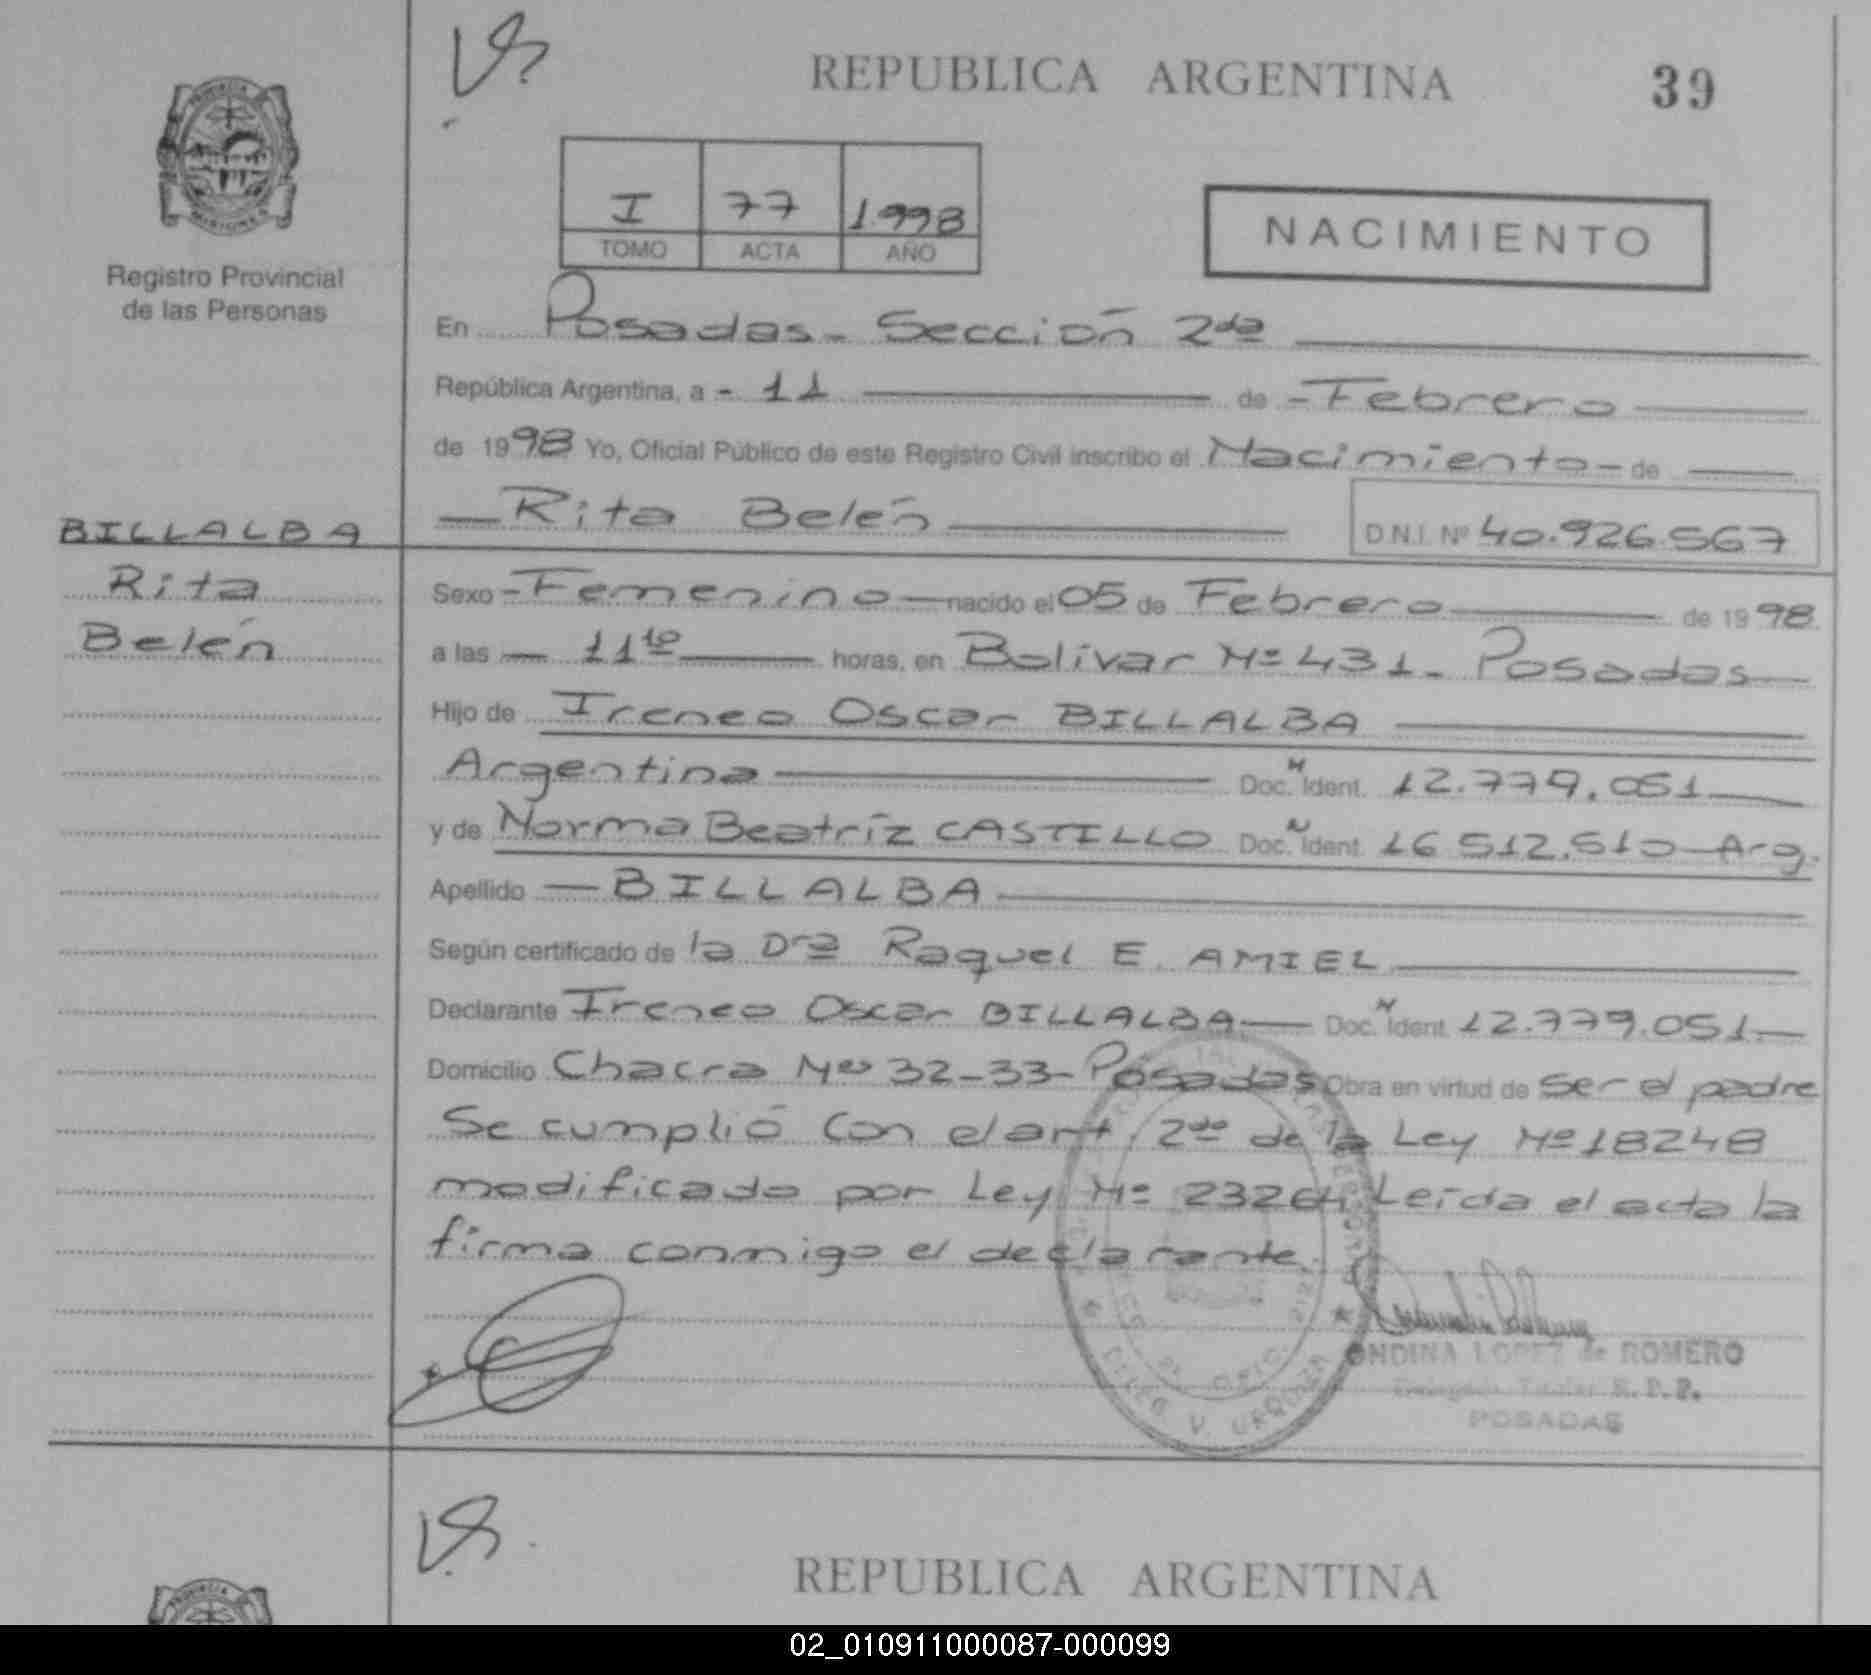 REPUBLICA ARGENTINA 39
I 77 1.998
TOMO ACTA AÑO
NACIMIENTO
Registro Provincial
de las Personas
En Posadas - Sección 2da
República Argentina, a - 11 de - Febrero
de 1998 Yo, Oficial Público de este Registro Civil inscribo el Nacimiento - de
Rita Belén D.N.I. Nº 40.926.567
BILLALBA
Rita
Belén
Sexo - Femenino nacido el 05 de Febrero de 1998.
a las 11 10 horas, en Bolívar Nº 431 - Posadas
Hijo de Ireneo Oscar BILLALBA
Argentina Doc. N Ident. 12.779.051
y de Norma Beatríz CASTILLO Doc. N Ident. 16 512.510 Arg.
Apellido BILLALBA
Según certificado de la Dra Raquel E. AMIEL
Declarante Ireneo Oscar BILLALBA Doc. N Ident. 12.779.051
Domicilio Chacra Nº 32-33- Posadas Obra en virtud de ser el padre
Se cumplió con el art. 2do de la Ley Nº 18248
modificado por Ley Nº 23264. Leída el acta la
firma conmigo el declarante.
ONDINA LOPEZ de ROMERO
Titular R.P.P.
POSADAS
REPUBLICA ARGENTINA
02_010911000087-000099